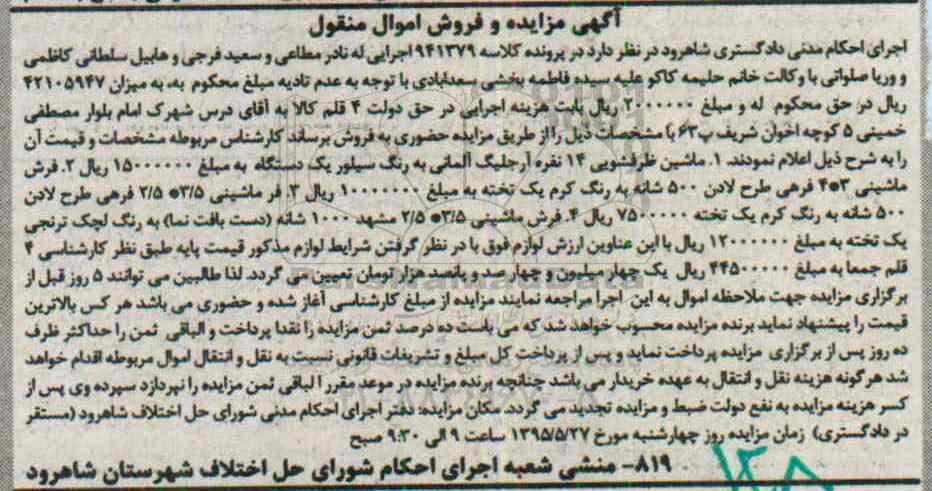 آگهی مزایده و فروش اموال منقول
اجرای احکام مدنی دادگستری شاهرود در نظر دارد در پرونده کلاسه ۹۴۱۳۷۹ اجرایی له نادر مطاعی و سعید فرجی و هابیل سلطانی کاظمی
و وریا صلواتی با وکالت خانم حلیمه کاکو علیه سیده فاطمه بخشی سعدابادی با توجه به عدم تادیه مبلغ محکوم به، به میزان ۴۲۱۰۵۹۴۷
ریال در حق محکوم له و مبلغ ۲۰۰۰۰۰۰ ریال بابت هزینه اجرایی در حق دولت ۴ قلم کالا به آقای درس شهرک امام بلوار مصطفی
خمینی ۵ کوچه اخوان شریف پ۶۳ با مشخصات ذیل را از طریق مزایده حضوری به فروش برساند کارشناس مربوطه مشخصات و قیمت آن
را به شرح ذیل اعلام نمودند. ۱. ماشین ظرفشویی ۱۴ نفره آرجلیگ آلمانی به رنگ سیلور یک دستگاه به مبلغ ۱۵۰۰۰۰۰۰ ریال ۲. فرش
ماشینی ۳*۴ فرهی طرح لادن ۵۰۰ شانه به رنگ کرم یک تخته به مبلغ ۱۰۰۰۰۰۰۰ ریال ۳. فر ماشینی ۳/۵* ۲/۵ فرهی طرح لادن
۵۰۰ شانه به رنگ کرم یک تخته ۷۵۰۰۰۰۰ ریال ۴. فرش ماشینی ۳/۵* ۲/۵ مشهد ۱۰۰۰ شانه (دست بافت نما) به رنگ لچک ترنجی
یک تخته به مبلغ ۱۲۰۰۰۰۰۰ ریال با این عناوین ارزش لوازم فوق با در نظر گرفتن شرایط لوازم مذکور قیمت پایه طبق نظر کارشناسی ۴
قلم جمعا به مبلغ ۴۴۵۰۰۰۰۰ ریال یک چهار میلیون و چهار صد و پانصد هزار تومان تعیین می گردد. لذا طالبین می توانند ۵ روز قبل از
برگزاری مزایده جهت ملاحظه اموال به این اجرا مراجعه نمایند مزایده از مبلغ کارشناسی آغاز شده و حضوری می باشد هر کس بالاترین
قیمت را پیشنهاد نماید برنده مزایده محسوب خواهد شد که می بایست ده درصد ثمن مزایده را نقدا پرداخت و الباقی ثمن را حداکثر ظرف
ده روز پس از برگزاری مزایده پرداخت نماید و پس از پرداخت کل مبلغ و تشریفات قانونی نسبت به نقل و انتقال اموال مربوطه اقدام خواهد
شد هر گونه هزینه نقل و انتقال به عهده خریدار می باشد چنانچه برنده مزایده در موعد مقرر ا لباقی ثمن مزایده را نپردازد سپرده وی پس از
کسر هزینه مزایده به نفع دولت ضبط و مزایده تجدید می گردد. مکان مزایده: دفتر اجرای احکام مدنی شورای حل اختلاف شاهرود (مستقر
در دادگستری) زمان مزایده روز چهارشنبه مورخ ۱۳۹۵/۵/۲۷ ساعت ۹ الی ۹:۳۰ صبح
۸۱۹- منشی شعبه اجرای احکام شورای حل اختلاف شهرستان شاهرود